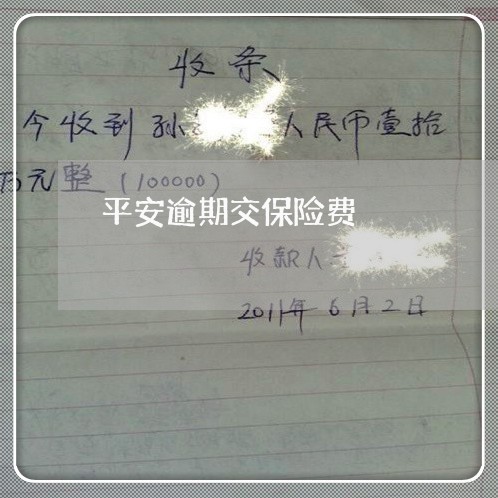 收条
今收到孙 人民币壹拾
万元整(100000)
平安逾期交保险费
收款人
2011年6月2日